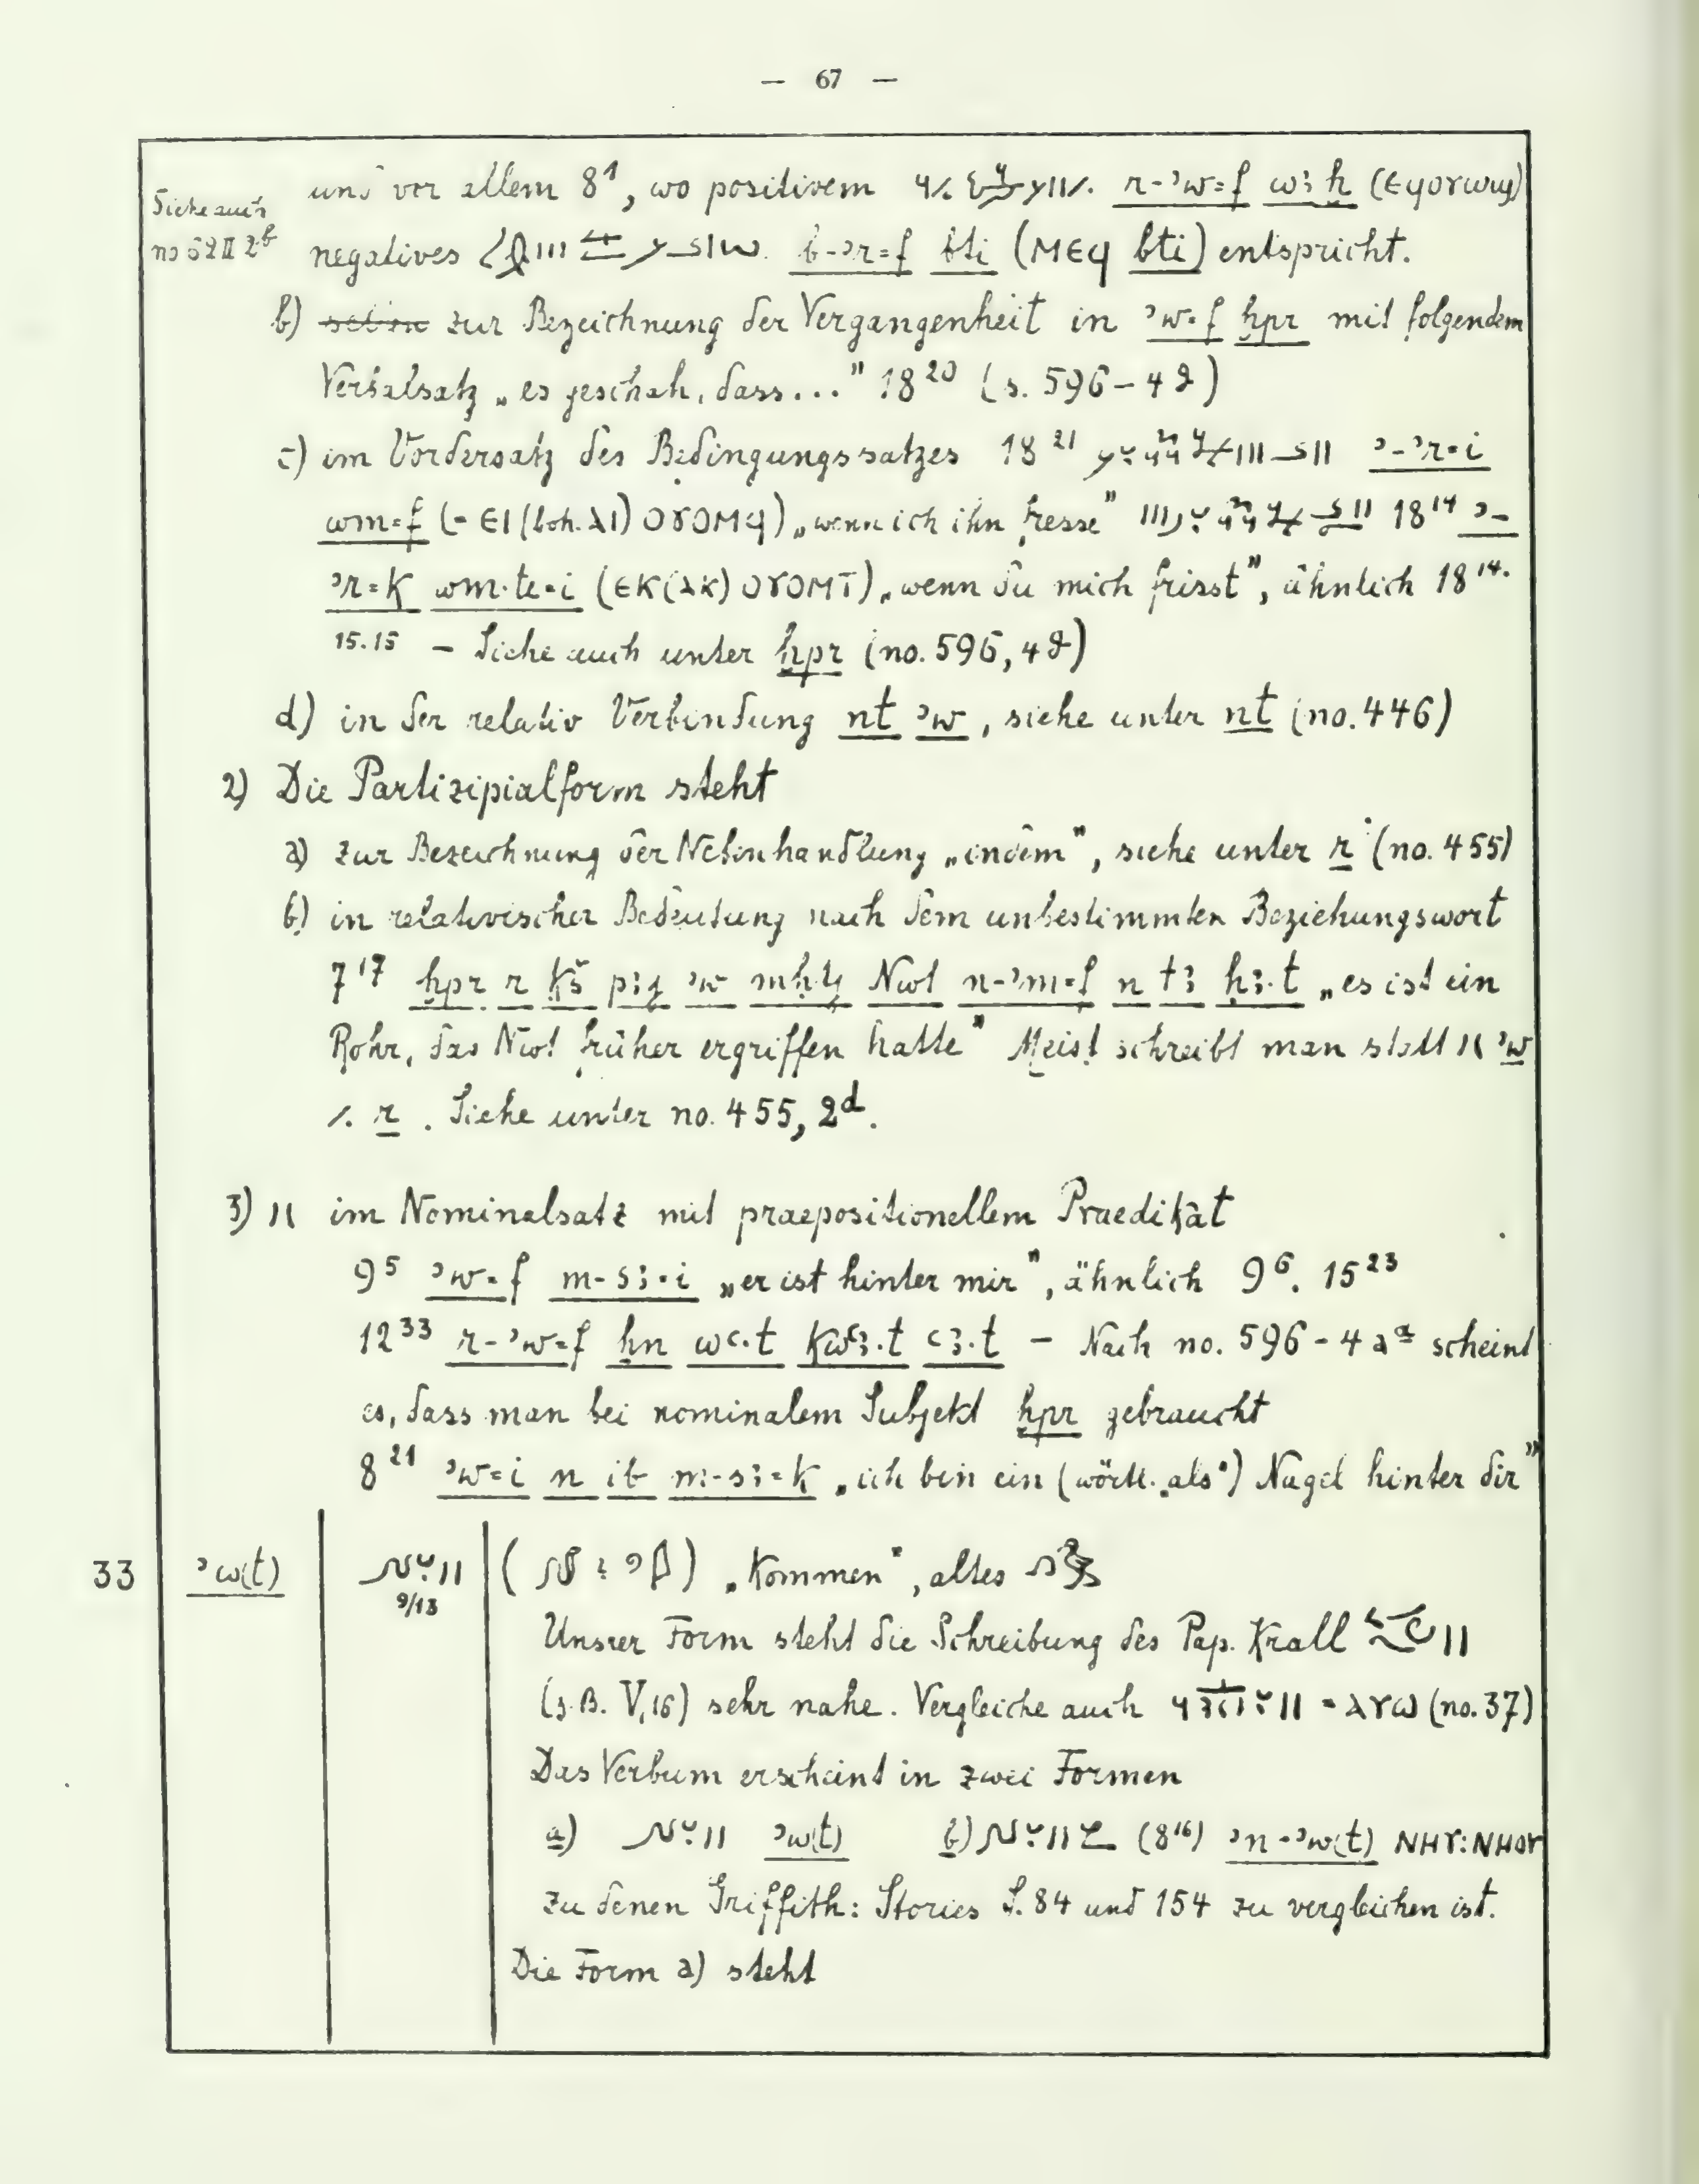 — 67 —
Siehe auch
no 52 II 2b
und vor allem 8¹, wo positivem r-ʾw=f wȝḫ (ⲉϥⲟⲩⲱϣ)
negatives b-ʾr=f bti (ⲙⲉϥ bti) entspricht.
b) zur Bezeichnung der Vergangenheit in ʾw=f ḫpr mit folgendem
Verbalsatz „es geschah, dass..." 18²⁰ (s. 596-4ϑ)
c) im Vordersatz des Bedingungssatzes 18²¹ ʾ-ʾr=i
wm=f (= ⲉⲓ (boh. ⲁⲓ) ⲟⲩⲟⲙϥ) „wenn ich ihn fresse" 18¹⁴ ʾ-
ʾr=k wm·te=i (ⲉⲕ(ⲁⲕ) ⲟⲩⲟⲙⲧ) „wenn du mich frisst", ähnlich 18¹⁴·
¹⁵·¹⁵ – Siehe auch unter ḫpr (no. 596, 4ϑ)
d) in der relativ Verbindung nt ʾw, siehe unter nt (no. 446)
2) Die Partizipialform steht
a) zur Bezeichnung der Nebenhandlung „indem", siehe unter r (no. 455)
b) in relativischer Bedeutung nach dem unbestimmten Beziehungswort
7¹⁷ ḫpr r ḳš ʾw Nwt n-ʾm=f n tȝ ḥȝ·t „es ist ein
Rohr, das Nwt früher ergriffen hatte" Meist schreibt man statt ʾw
r. Siehe unter no. 455, 2d.
3) im Nominalsatz mit praepositionellem Praedikat
9⁵ ʾw=f m-sȝ=i „er ist hinter mir", ähnlich 9⁶. 15²³
12³³ r-ʾw=f ḫn wꜥ·t ꜥȝ·t – Nach no. 596-4aα scheint
es, dass man bei nominalem Subjekt ḫpr gebraucht
8²¹ ʾw=i n ib m-sȝ=k „ich bin ein (wörtl. „als") Nagel hinter dir"
33 ʾw(t) 9/13 „kommen", altes
Unsrer Form steht die Schreibung des Pap. Krall
(z.B. V,16) sehr nahe. Vergleiche auch = ⲁⲩⲱ (no. 37)
Das Verbum erscheint in zwei Formen
a) ʾw(t) b) (8¹⁶) ʾn-ʾw(t) ⲛⲏⲩ:ⲛⲏⲟⲩ
zu denen Griffith: Stories S. 84 und 154 zu vergleichen ist.
Die Form a) steht